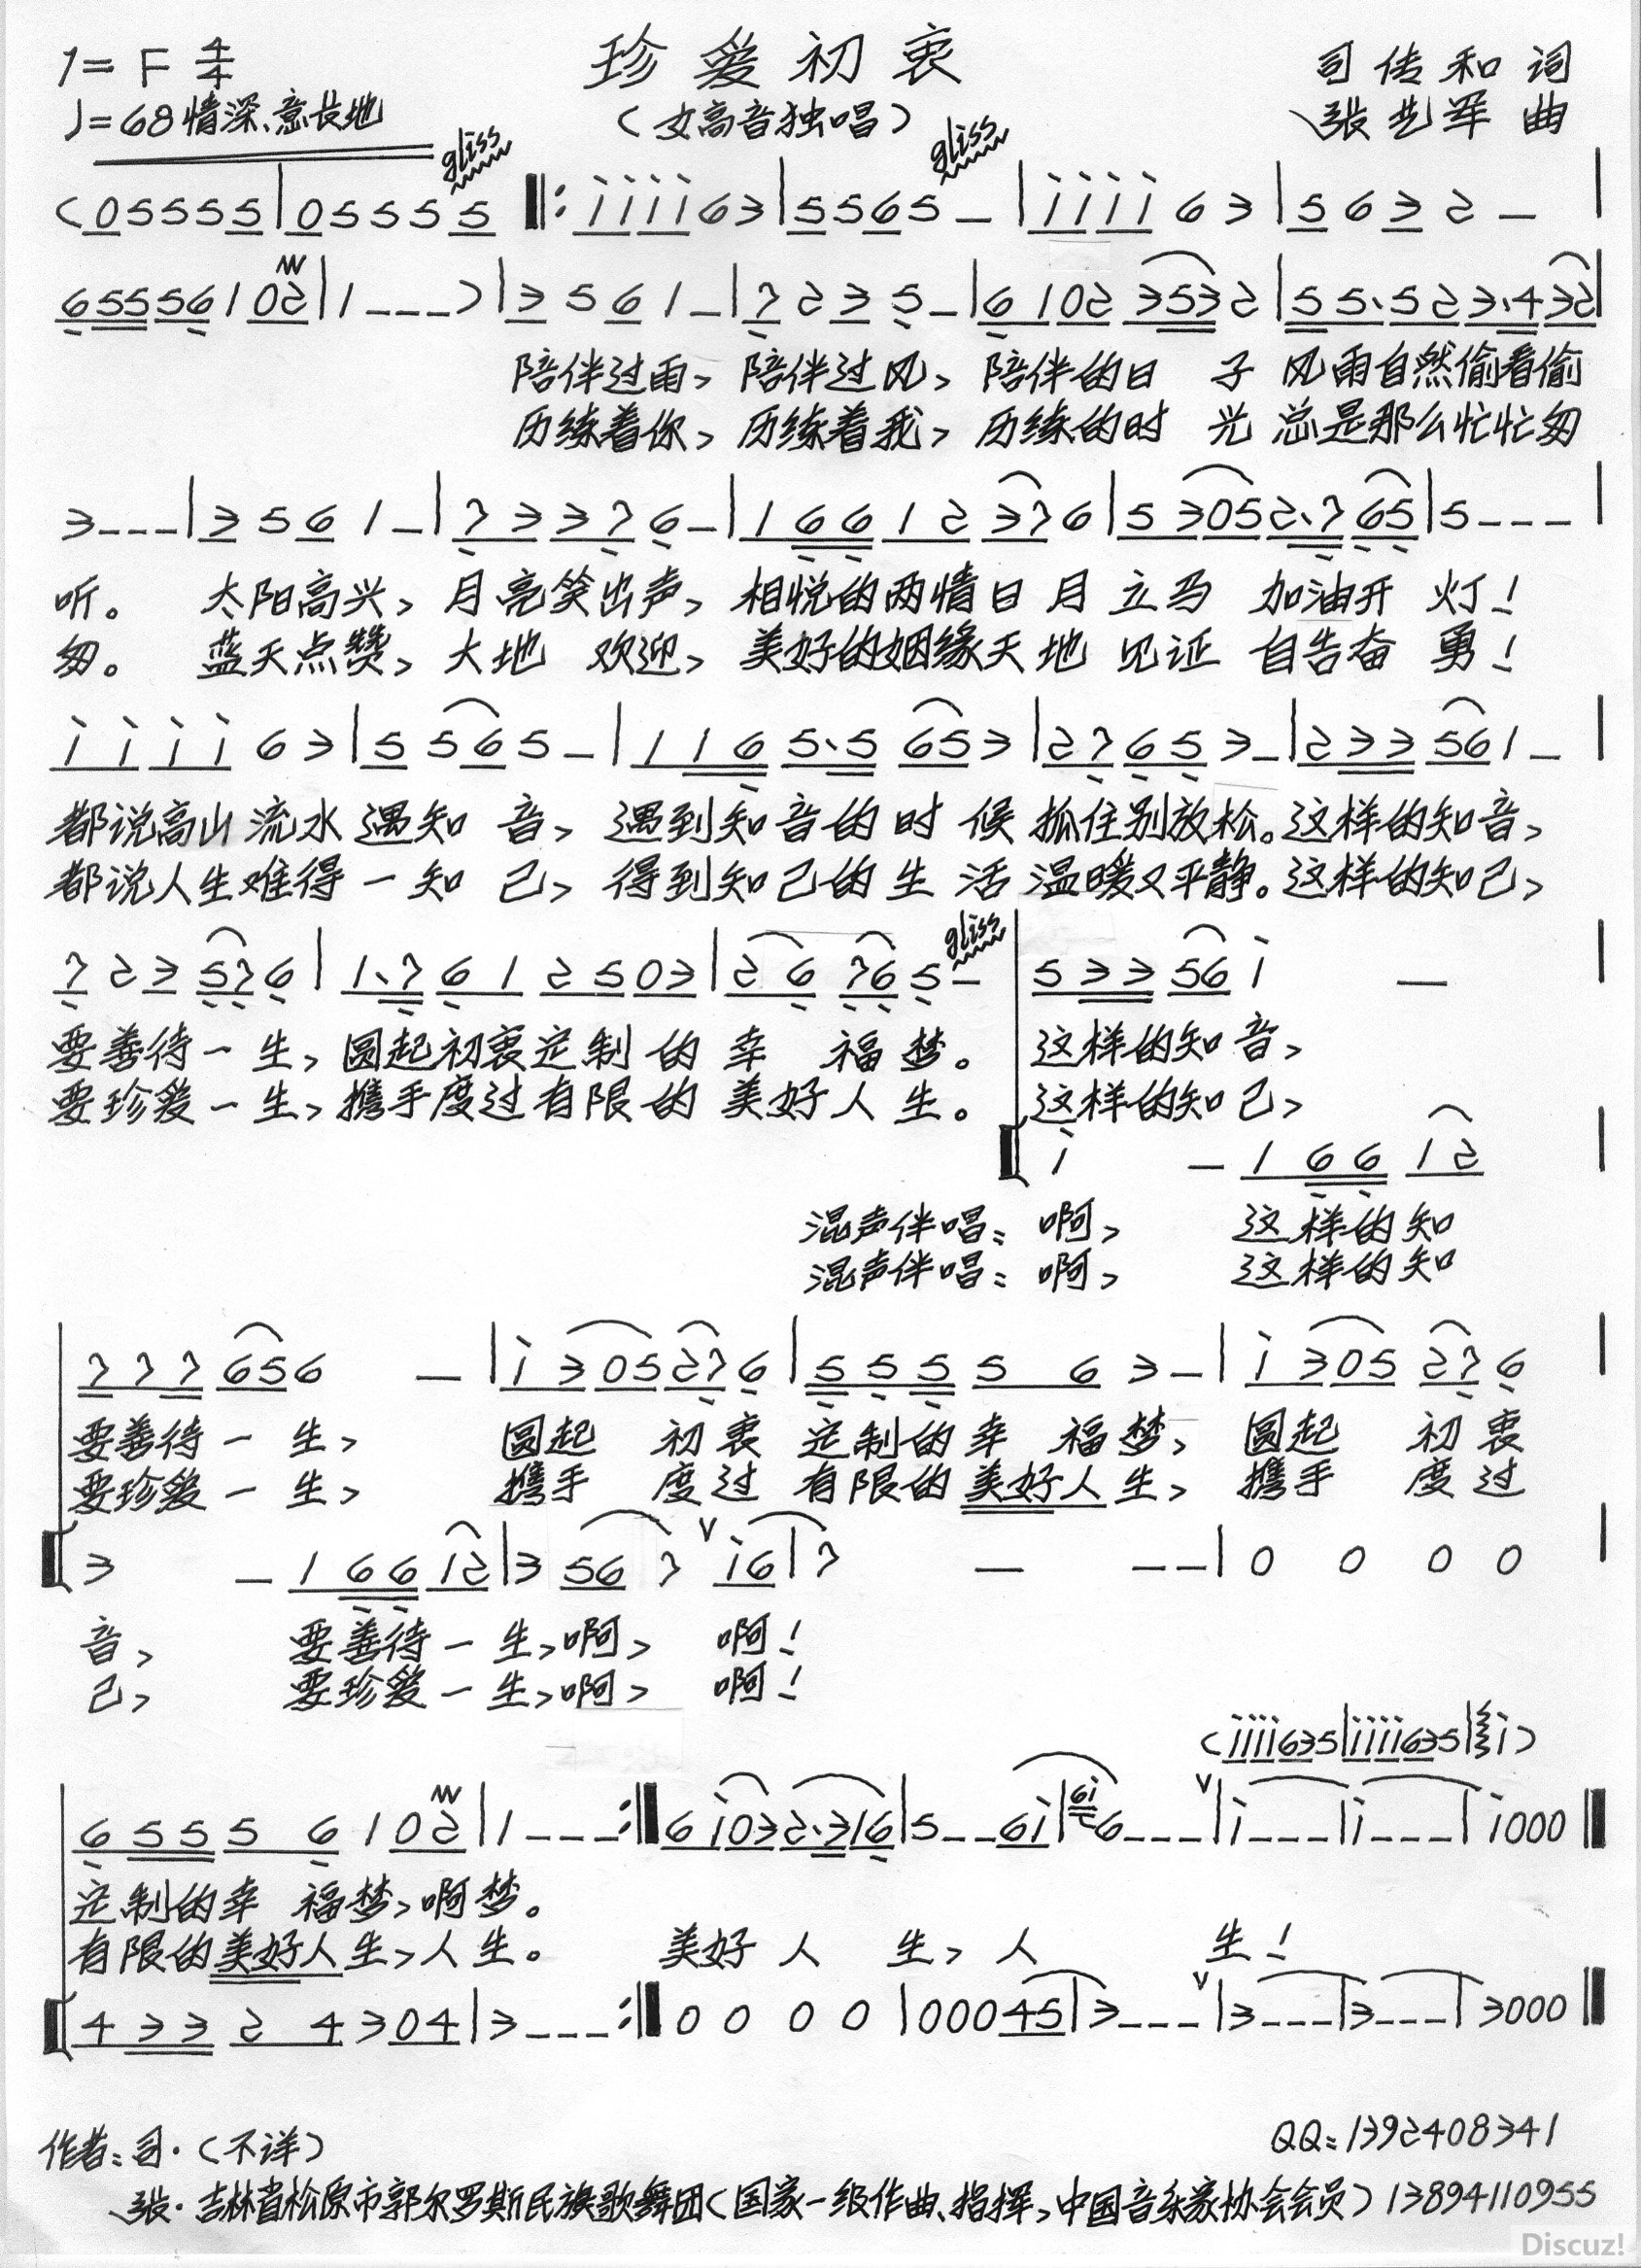 1=F 4/4 珍爱初衷 司传和 词
♩=68 情深、意长地 (女高音独唱) 张艺军 曲
gliss gliss
(05555|05555‖:i i i i 6 3|5 5 6 5 –|i i i i 6 3|5 6 3 2 –|
6 5 5 5 6 1 0 2|1 – – –)|3 5 6 1 –|7 2 3 5 –|6 1 0 2 3 5 3 2|5 5. 5 2 3. 4 3 2|
陪伴过雨, 陪伴过风, 陪伴的日 子 风雨自然偷看偷
历练着你, 历练着我, 历练的时 光 总是那么忙忙匆
3 – – –|3 5 6 1 –|7 3 3 7 6 –|1 6 6 1 2 3 7 6|5 3 0 5 2. 7 6 5|5 – – –|
听。 太阳高兴, 月亮笑出声, 相悦的两情日月 立马 加油开 灯!
匆。 蓝天点赞, 大地 欢迎, 美好的姻缘天地 见证 自告奋 勇!
i i i i 6 3|5 5 6 5 –|1 1 6 5. 5 6 5 3|2 7 6 5 3 –|2 3 3 5 6 1 –|
都说高山流水遇知 音, 遇到知音的时 候 抓住别放松。这样的知音,
都说人生难得一知 己, 得到知己的生 活 温暖又平静。这样的知己,
gliss
7 2 3 5 7 6|1. 7 6 1 2 5 0 3|2 6 7 6 5 –|5 3 3 5 6 i –|
要善待一生, 圆起初衷定制的幸 福梦。 这样的知音,
要珍爱一生, 携手度过有限的 美好人生。 这样的知己,
i – 1 6 6 1 2|
混声伴唱: 啊, 这样的知
混声伴唱: 啊, 这样的知
7 7 7 6 5 6 –|i 3 0 5 2 7 6|5 5 5 5 6 3 –|i 3 0 5 2 7 6|
要善待一生, 圆起 初衷 定制的幸 福梦, 圆起 初衷
要珍爱一生, 携手 度过 有限的美好人生, 携手 度过
3 – 1 6 6 1 2|3 5 6 7 V i 6|7 – – –|0 0 0 0|
音, 要善待一生,啊, 啊!
己, 要珍爱一生,啊, 啊!
(i i i i 6 3 5|i i i i 6 3 5|i)
6 5 5 5 6 1 0 2|1 – – –:‖6 i 0 3 2. 3 1 6|5 – – 6 i|6i 6 – – – V|i – – –|i – – –|i 0 0 0‖
定制的幸 福梦,啊梦。
有限的美好人生,人生。 美好 人 生, 人 生!
4 3 3 2 4 3 0 4|3 – – –:‖0 0 0 0|0 0 0 4 5|3 – – – V|3 – – –|3 – – –|3 0 0 0‖
作者:司·(不详) QQ:1392408341
张·吉林省松原市郭尔罗斯民族歌舞团(国家一级作曲、指挥,中国音乐家协会会员)13894110955
Discuz!